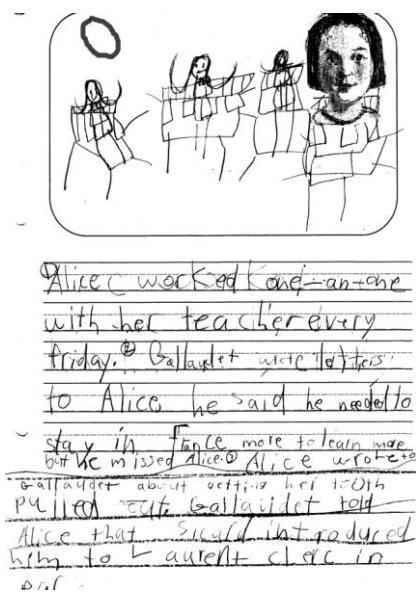 ① Alice worked one-an-one
with her teacher every
friday. ② Gallaudet wrote letters
to Alice he said he needed to
stay in France more to learn more
but he missed Alice. ③ Alice wrote to
Gallaudet about getting her tooth
pulled out. Gallaudet told
Alice that Sicard introduced
him to Laurent clerc in